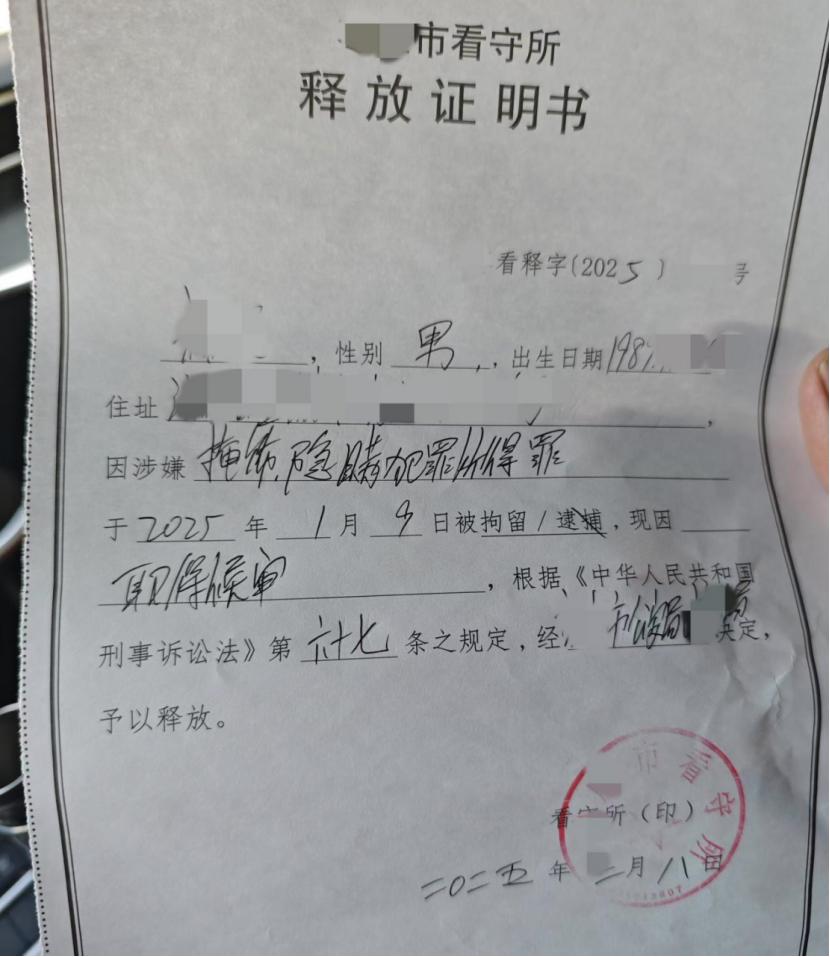 市看守所
释放证明书
看释字(2025)号
，性别 男，出生日期198
住址，
因涉嫌 掩饰、隐瞒犯罪所得罪
于 2025 年 1 月 9 日被拘留/逮捕，现因
取保候审，根据《中华人民共和国
刑事诉讼法》第 六十七 条之规定，经 决定，
予以释放。
市看守所
看守所（印）
二〇二五年二月八日